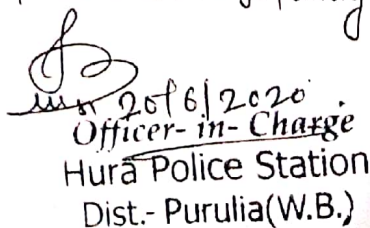 20/6/2020
Officer- in- Charge
Hura Police Station
Dist.- Purulia(W.B.)